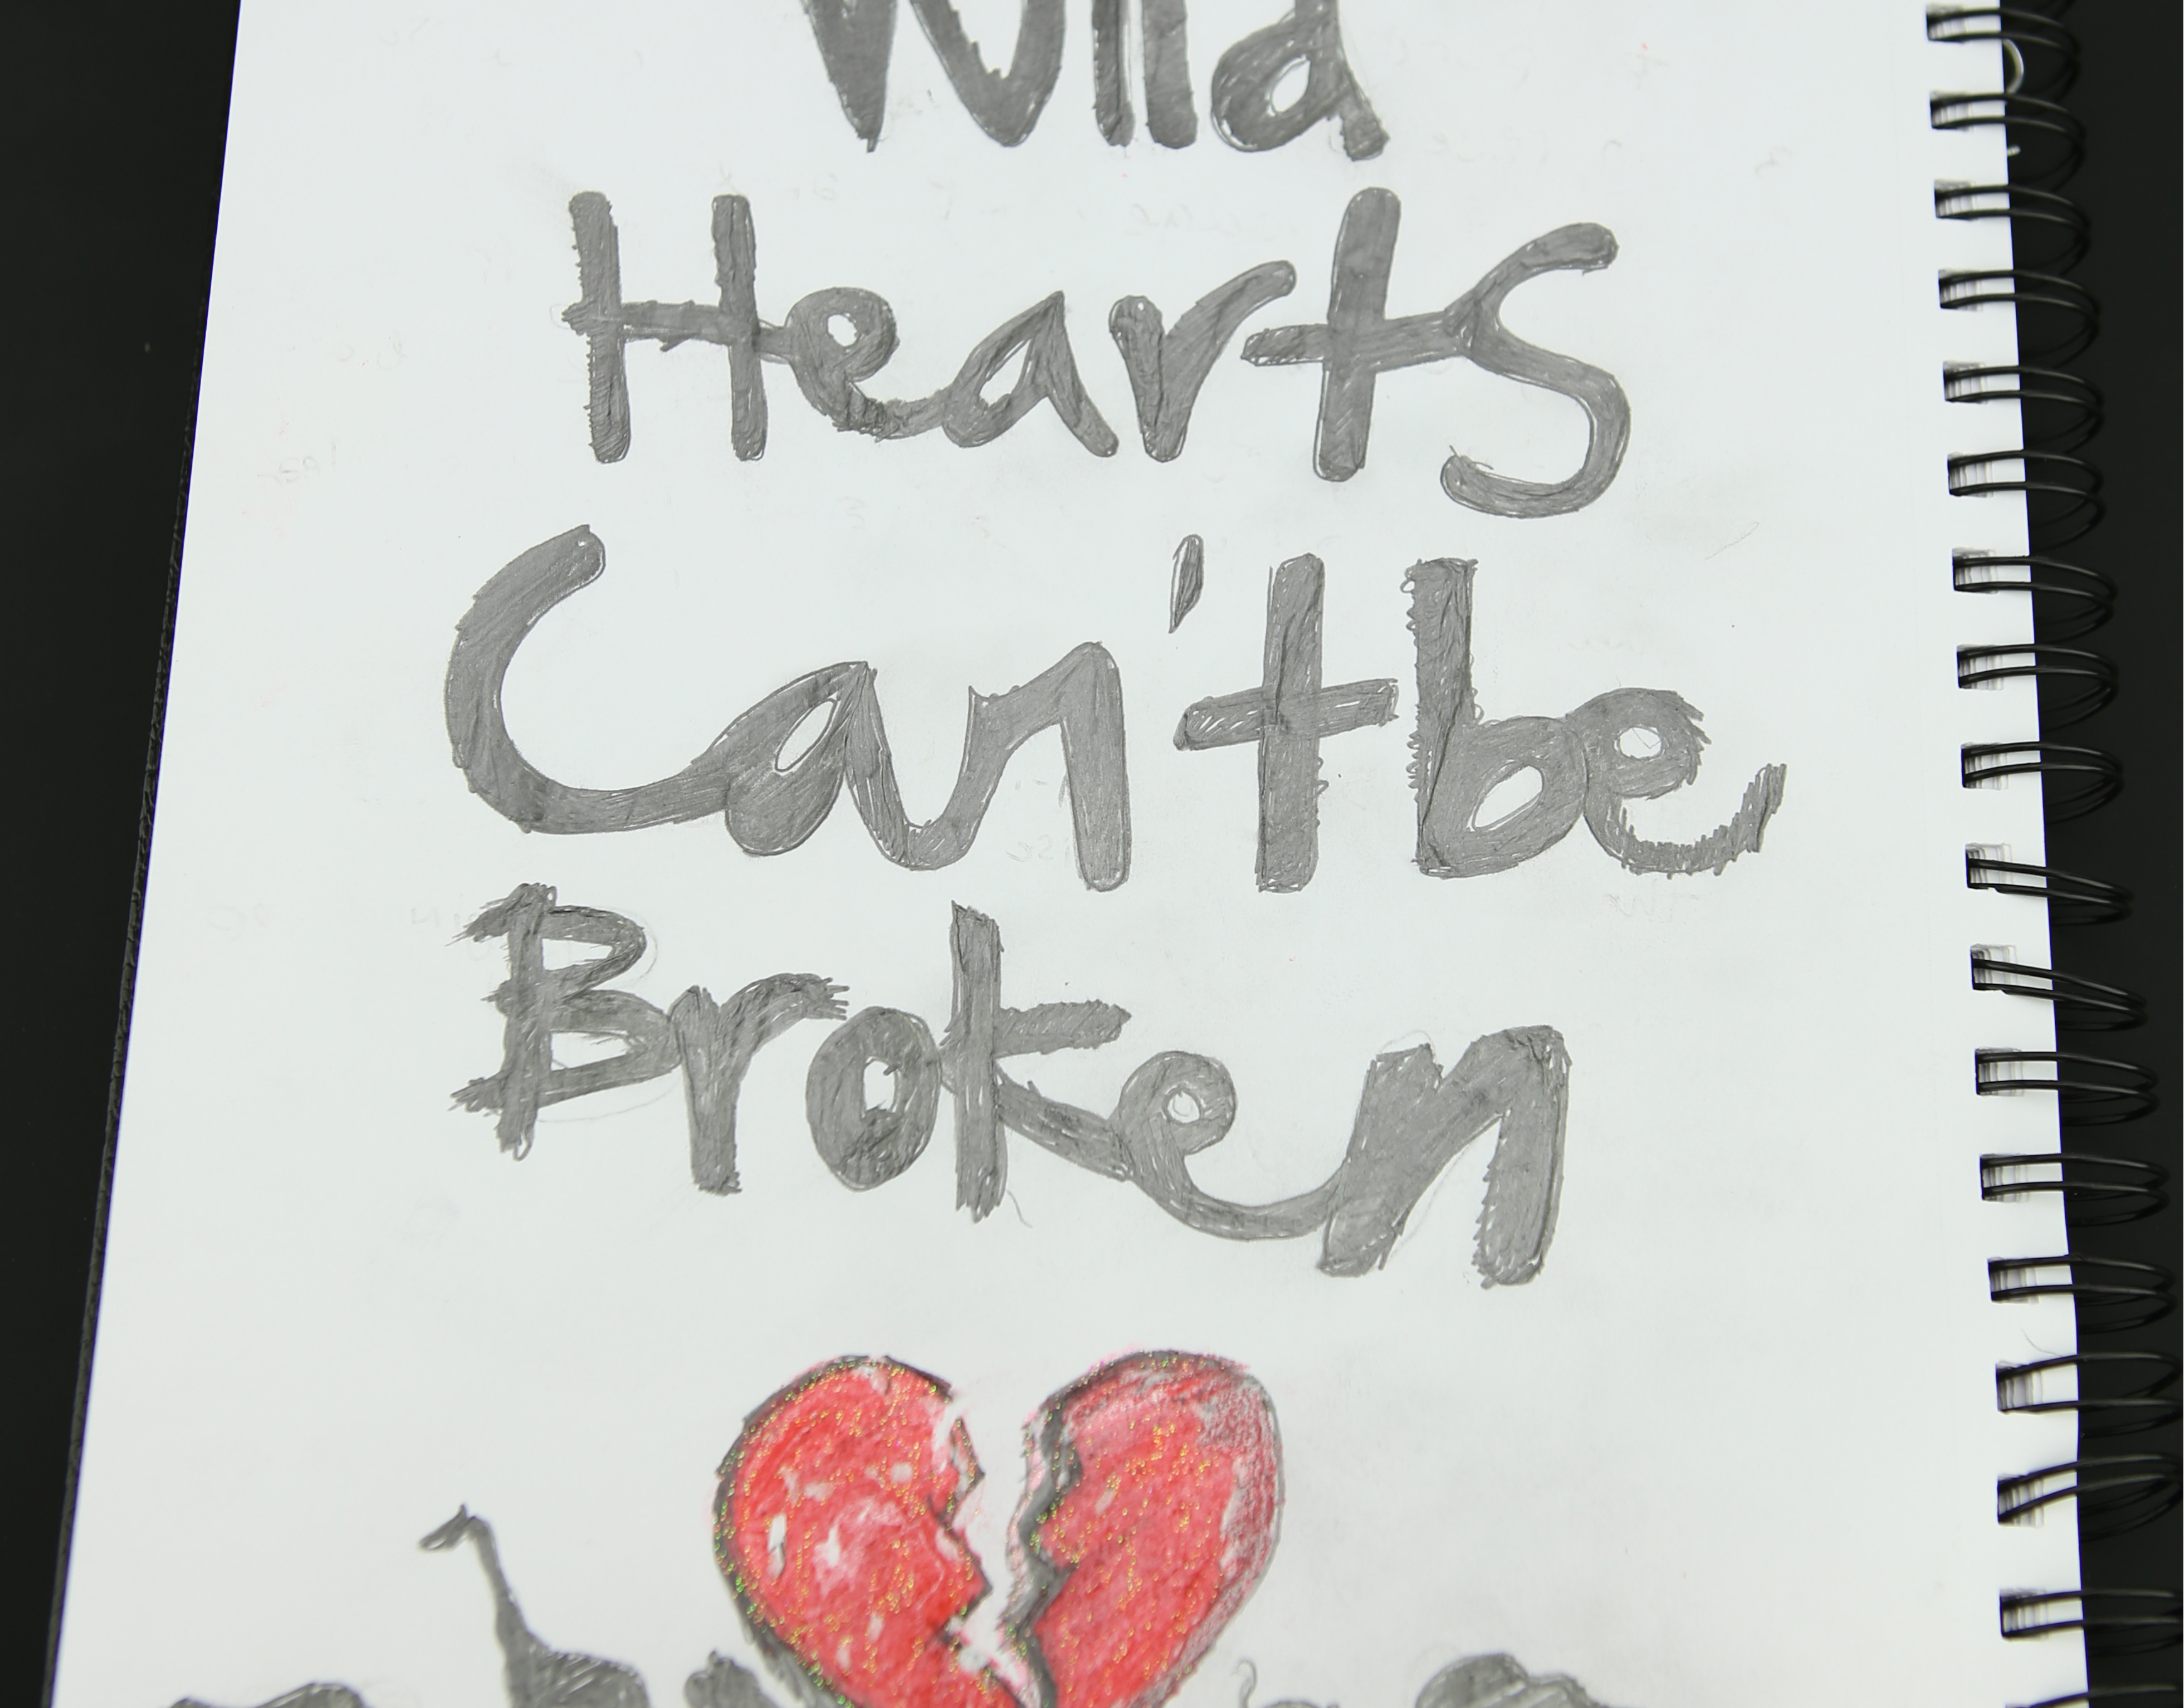 Wild
Hearts
Can't be
Broken